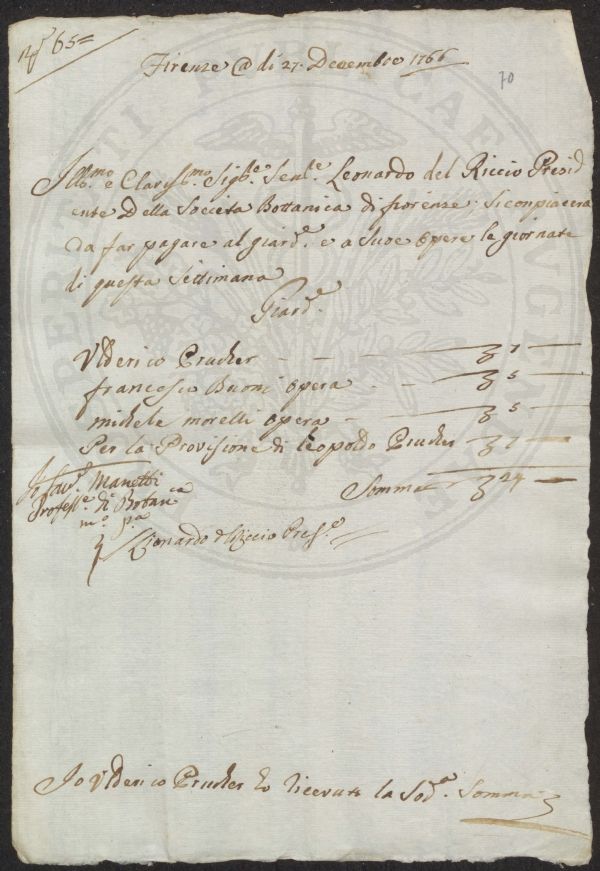 N° 65=
Firenze @ di 27. Decembre 1766
70
Ill.mo e Clariss.mo Sig.re Sen.re Leonardo del Riccio Presid
ente Della Societa Bottanica di fiorenze Si conpiacera
da far pagare al giard.e e a Suoe opere le giornate
di questa Settimana
Giard.e
Vlderico Prucher - - - 7
francesco Buoni opera - - 5
michele morelli opera - 5
Per la Provisione di Leopoldo Prucher - 7 -
Io Sav. Manetti
Profess.e di Botan.ca
m.o p.a
Somma 24 -
Lionardo d Riccio Pres.e
Io Vlderico Prucher ho ricevuto la Sod.a Somma
PERITI PUBLICAE UGENDAE